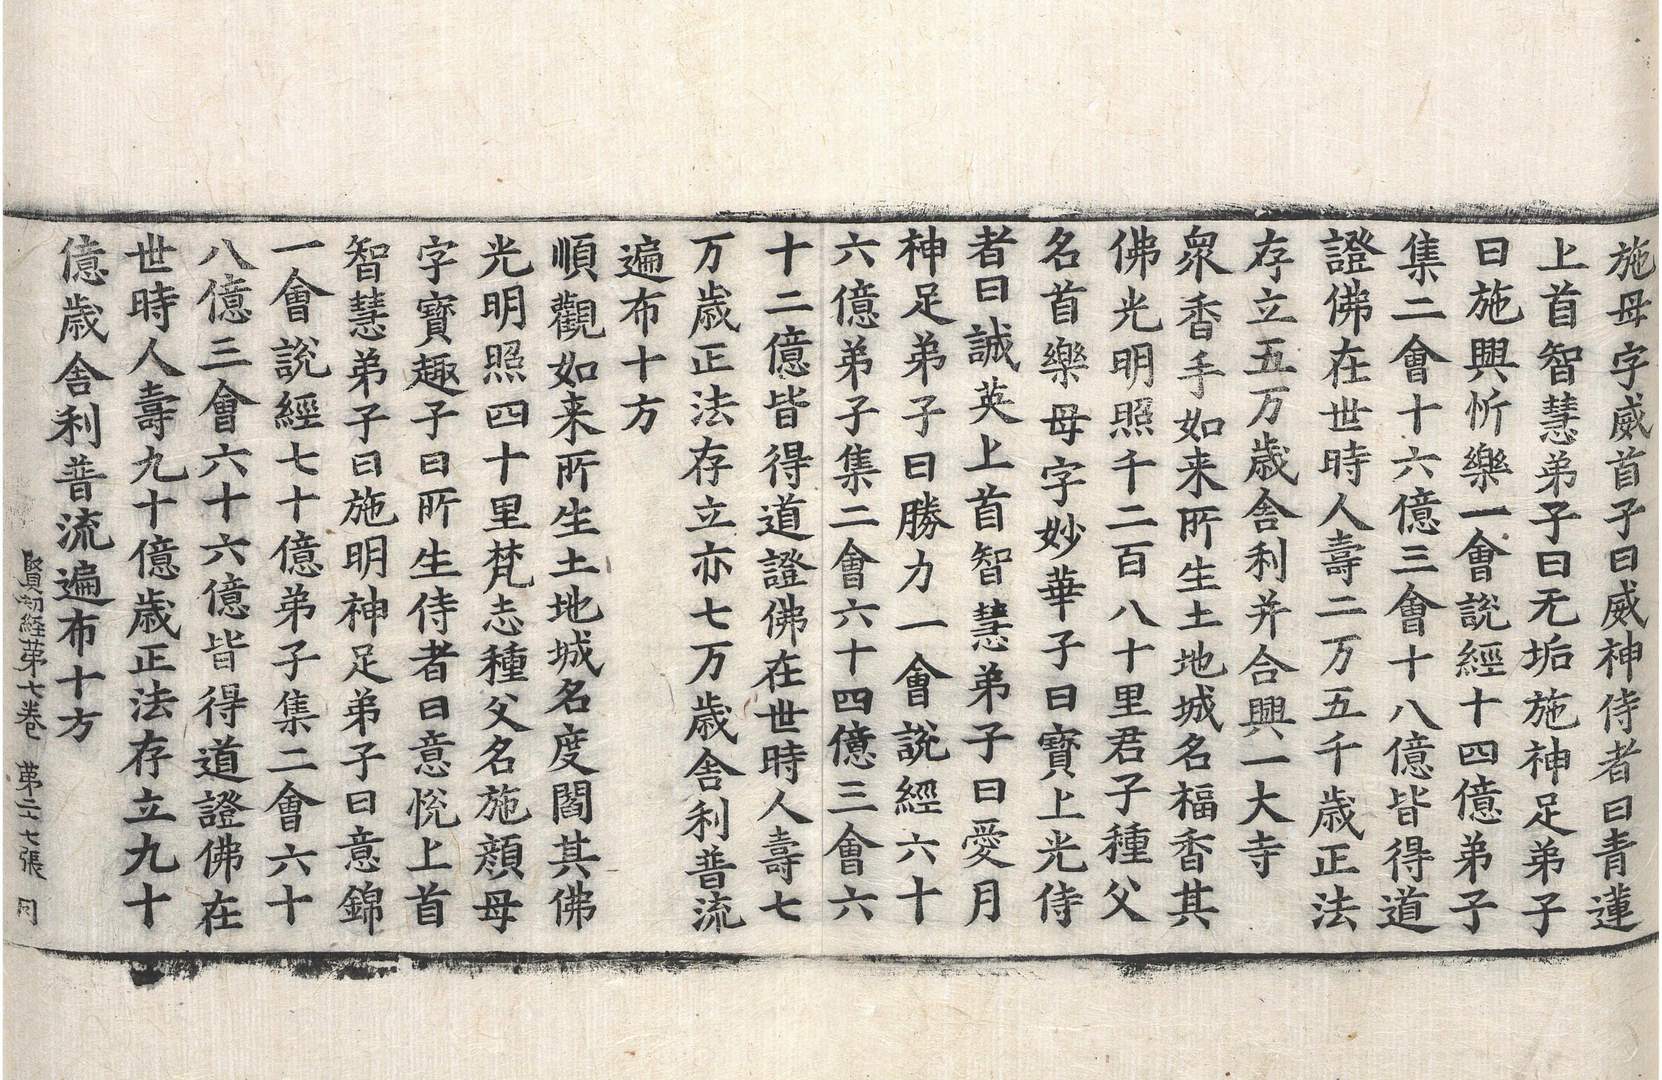 施母字威首子曰威神侍者曰青蓮
上首智慧弟子曰无垢施神足弟子
曰施興忻樂一會說經十四億弟子
集二會十六億三會十八億皆得道
證佛在世時人壽二万五千歲正法
存立五万歲舍利并合興一大寺
衆香手如来所生土地城名福香其
佛光明照千二百八十里君子種父
名首樂母字妙華子曰寶上光侍
者曰誠英上首智慧弟子曰愛月
神足弟子曰勝力一會說經六十
六億弟子集二會六十四億三會六
十二億皆得道證佛在世時人壽七
万歲正法存立亦七万歲舍利普流
遍布十方
順觀如来所生土地城名度閻其佛
光明照四十里梵志種父名施顔母
字寶趣子曰所生侍者曰意悅上首
智慧弟子曰施明神足弟子曰意錦
一會說經七十億弟子集二會六十
八億三會六十六億皆得道證佛在
世時人壽九十億歲正法存立九十
億歲舍利普流遍布十方
賢劫經第七卷 第二十七張 同